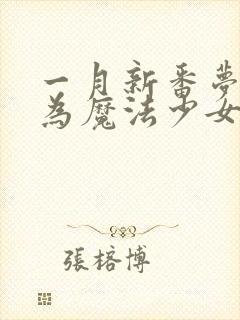 一月新番夢
為魔法少女
張榕博